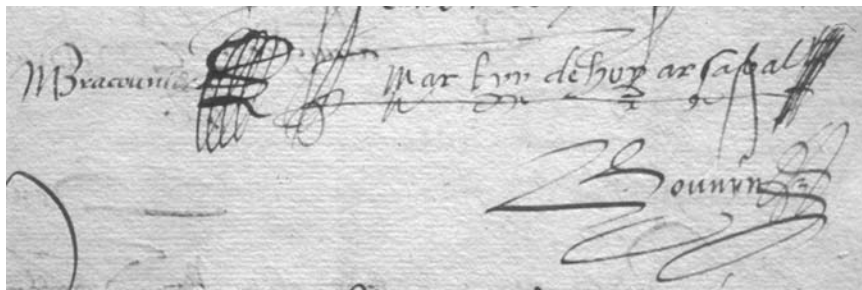 MBracounier Martyn de hoyarsabal
Bounyn